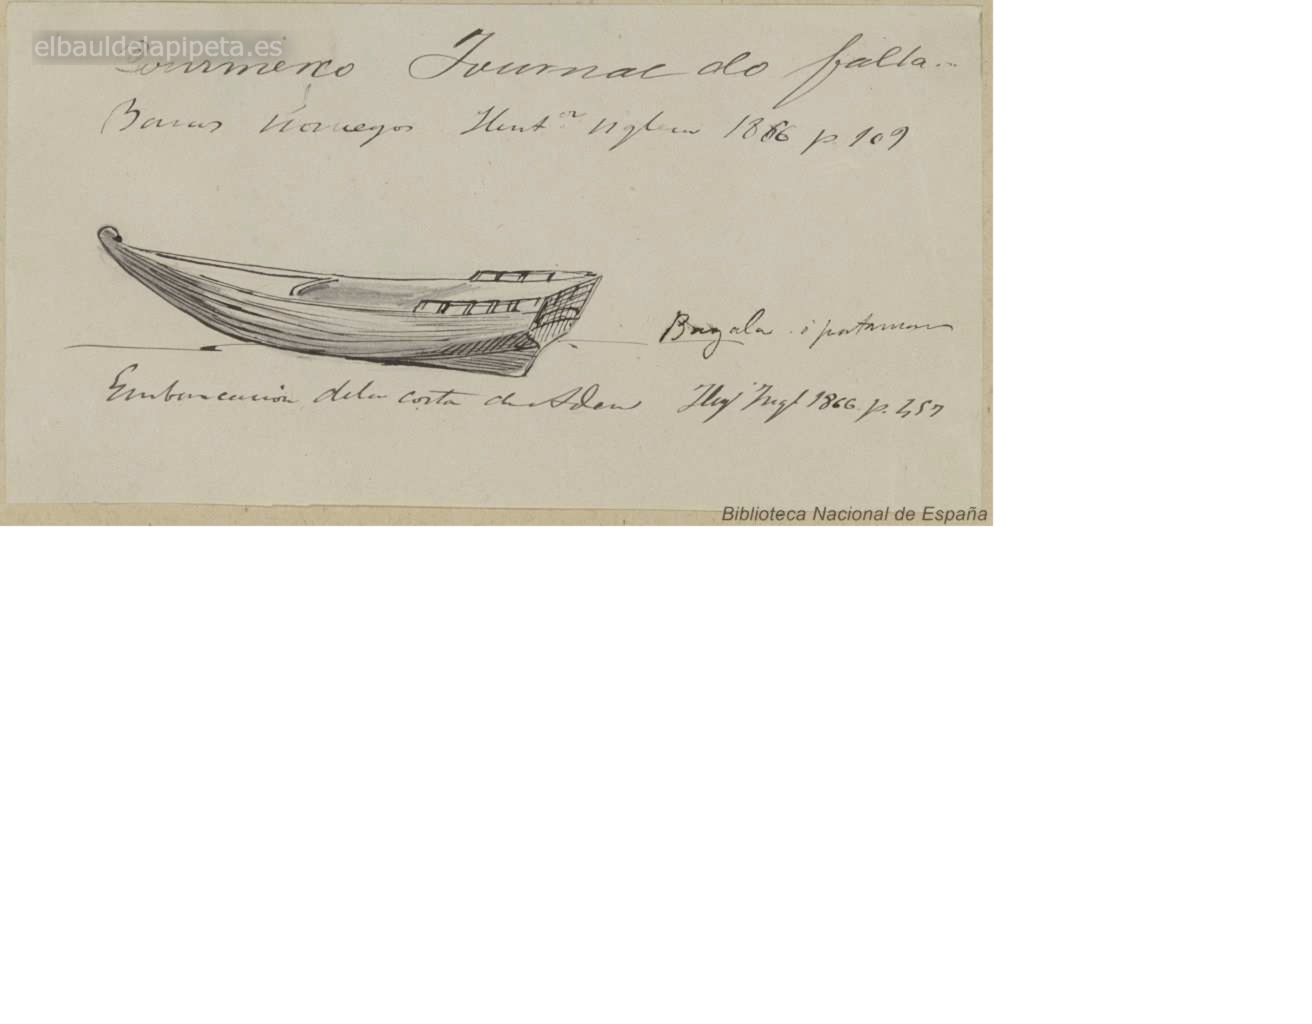 elbauldelapipeta.es
Journal do falta..
Barcos Noruegos Ilust.on Inglesa 1866 p. 109
Bagala ó patamar
Embarcacion dela costa de Aden Ilus Ingl 1866. p. 457
Biblioteca Nacional de España